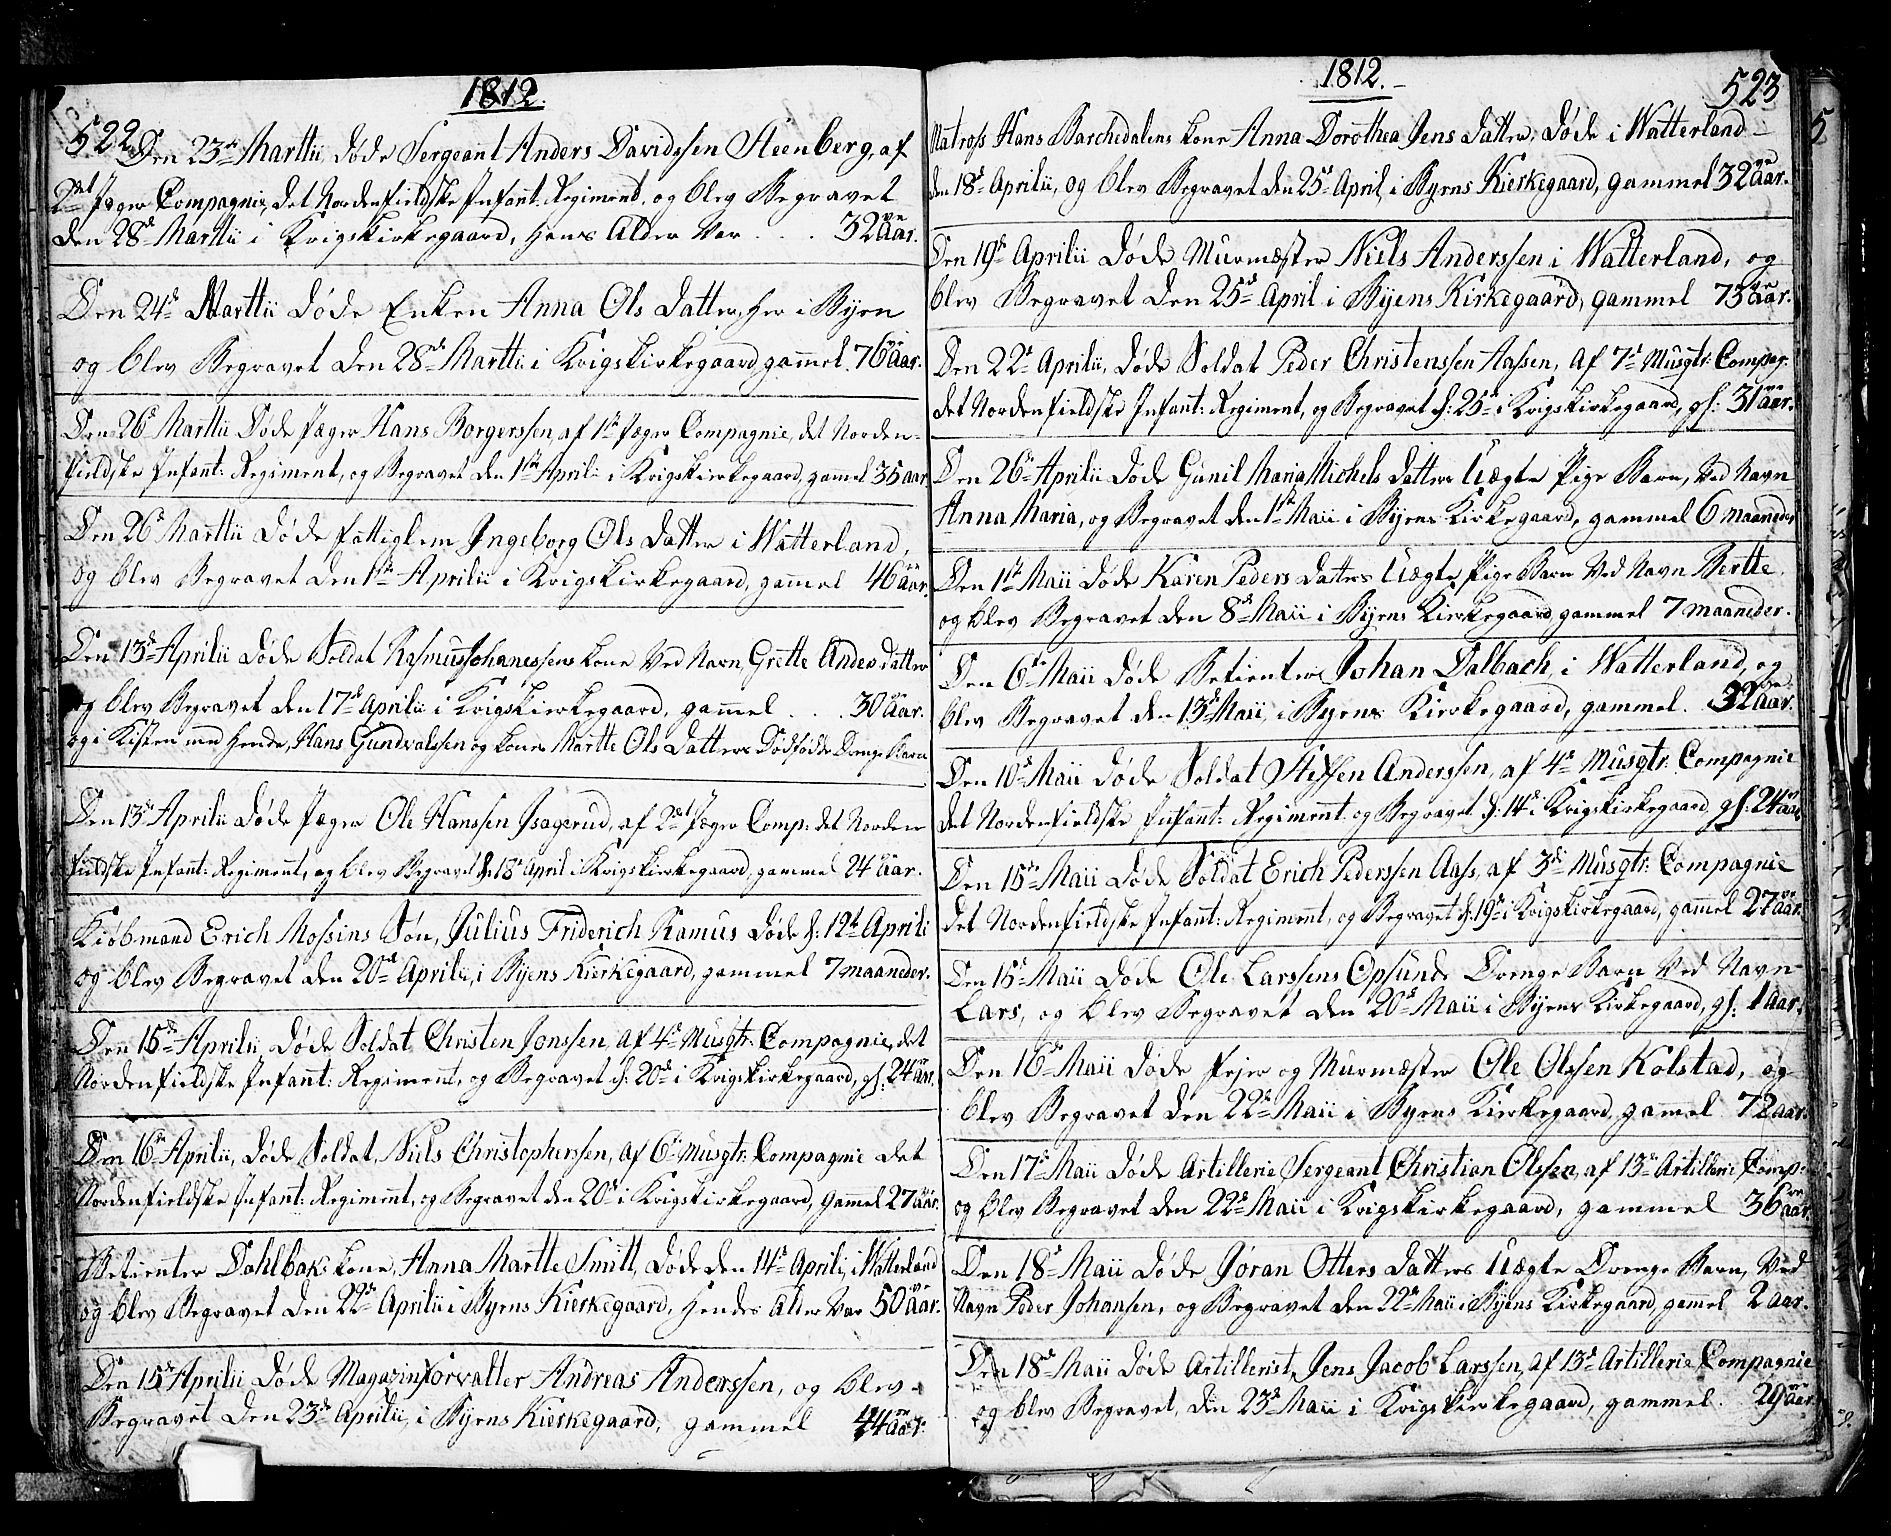 1812.
522
Den 23de Martii døde Sergeant Anders Davidssen Steenberg, af
2det Jæger Compagnie, det Nordenfieldske Infant: Regiment, og blev Begravet
den 28de Martii i Krigskirkegaard, hans Alder Var . . . 32 Aar.
Den 24de Martii døde Enken Anna Ols datter, her i Byen
og blev Begravet den 28de Martii i Krigskirkegaard, gammel 76 Aar.
Den 26de Martii døde Jæger Hans Borgerssen, af 1ste Jæger Compagnie, det Norden-
fieldske Infant: Regiment, og Begravet den 1ste Aprili i Krigskirkegaard, gammel 35 aar
Den 26de Martii døde fattiglem Ingeborg Ols datter i Watterland,
og blev Begravet den 1ste Aprilii i Krigskirkegaard, gammel 46 aar.
Den 13de Aprilii døde Soldat Rasmus Johanessens kone Ved Navn, Grette Anders datter
og blev Begravet den 17de Aprilii i Krigskierkegaard, gammel . . . 30 Aar.
og i Kisten med hende, Hans Gundvalssen og kones Martte Ols datters Dødfødte Drenge Barn
Den 13de Aprilii døde Jæger Ole Hanssen Isagerud, af 2det Jæger Comp: det Norden
fieldske Infant: Regiment, og blev Begravet d: 18de April i Krigskierkegaard, gammel 24 Aar.
Kiøbmand Erich Mossins Søn, Julius Friderich Ramus døde d: 12te Aprili
og blev Begravet den 20de Aprilii, i Byens Kierkegaard, gammel 7 maaneder.
Den 15de Aprilii, døde Soldat Christen Jonssen, af 4de Musqtr: Compagnie, det
Nordenfieldske Infant: Regiment, og Begravet d: 20de i Krigskirkegaard, gl: 24 aar.
Den 16de Aprilii, døde Soldat, Niels Christophersen, af 6te Musqtr: Compagnie det
Nordenfieldske Infant: Regiment, og Begravet den 20de i Krigskirkegaard, gammel 27 aar.
Betienter Dahlbaks kone, Anna Martte Smitt, døde den 14de Aprili, i Watterland
og blev Begravet den 22de Aprilii i Byens Kierkegaard, hendes Alder Var 50 Aar.
Den 15de Aprilii døde Magazinforvalter Andreas Anderssen, og blev
Begravet den 23de Aprilii, i Byens Kierkegaard, gammel 44 Aar.
1812.
523
Matross Hans Barchedalens kone Anna Dorothea Jens datter, døde i Watterland
den 18de Aprilii, og blev Begravet den 25de April, i Byens Kierkegaard, gammel 32 Aar.
Den 19de Aprilii døde Murmæster Niels Anderssen i Watterland, og
blev Begravet den 25de April i Byens Kirkegaard, gammel 73 Aar.
Den 22de Aprilii, døde Soldat Peder Christenssen Aassen, af 7de Musqtr: Compag:
det Nordenfieldske Infant: Regiment, og Begravet d: 25de i Krigskirkegaard, gl: 31 aar.
Den 26de Aprilii døde Gunil Maria Michels datters Uægte Pige Barn, Ved Navn
Anna Maria, og Begravet den 1ste Maii i Byens Kirkegaard, gammel 6 maaneder
Den 1ste Maii døde Karen Peders datters Uægte Pige Barn Ved Navn Bertte.
og blev Begravet den 8de Maii i Byens Kirkegaard gammel 7 maaneder.
Den 6te Maii døde Betienter Johan Dalbach, i Watterland, og
blev Begravet den 13de Maii, i Byens Kierkegaard, gammel. 32 Aar.
Den 10de Maii døde Soldat Steffen Anderssen, af 4de Musqtr: Compagnie
det Nordenfieldske Infant: Regiment og Begravet d: 14de i Krigskirkegaard, gl: 24 aar
Den 15de Maii døde Soldat Erich Pederssen Aass, af 3die Musqtr: Compagnie
det Nordenfieldske Infant: Regiment, og Begravet d: 19de i Krigskirkegaard, gammel 27 aar.
Den 15de Maii døde Ole Larssens Opsunde Drenge Barn Ved Navn
Lars, og blev Begravet den 20de Maii i Byens Kirkegaard, gl: 1 Aar.
Den 16de Maii døde Fejer og Murmæster Ole Olssen Kolstad, og
blev Begravet den 22de Maii i Byens Kierkegaard, gammel 72 aar.
Den 17de Maii døde Artillerie Sergeant Christian Olssen, af 13de Artillerie Comp:
og blev Begravet den 22de Maii i Krigskirkegaard, gammel 36 aar.
Den 18de Maii døde Jøran Otters datters Uægte Drenge Barn, Ved
Navn Peder Johansen, og Begravet den 22de Maii i Byens Kirkegaard, gammel 2 aar.
Den 18de Maii døde Artillerist, Jens Jacob Larssen, af 13de Artillerie Compagnie
og blev Begravet, den 23de Maii i Krigskirkegaard, gammel. 29 Aar.